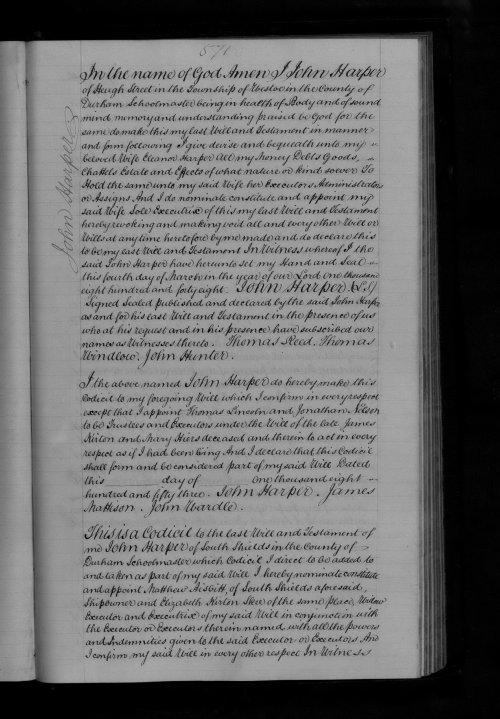 571
In the name of God Amen I John Harper
of Heugh Street in the Township of Westoe in the County of
Durham Schoolmaster being in health of Body and of sound
mind memory and understanding praised be God for the
same do make this my last Will and Testament in manner
and form following I give devise and bequeath unto my
beloved Wife Eleanor Harper All my Money Debts Goods,
Chattels Estate and Effects of what nature or kind soever To
Hold the same unto my said Wife her Executors Administrators
or Assigns And I do nominate constitute and appoint my
said Wife Sole Executrix of this my last Will and Testament
hereby revoking and making void all and every other Will or
Wills at any time heretofore by me made and do declare this
to be my last Will and Testament In Witness whereof I the
said John Harper have hereunto set my Hand and Seal
this fourth day of March in the year of our Lord one thousand
eight hundred and forty eight. John Harper (LS)
Signed Sealed published and declared by the said John Harper
as and for his last Will and Testament in the presence of us
who at his request and in his presence have subscribed our
names as Witnesses thereto. Thomas Reed. Thomas
Windlow. John Hunter.
I the above named John Harper do hereby make this
Codicil to my foregoing Will which I confirm in every respect
except that I appoint Thomas Lincoln and Jonathan Nelson
to be Trustees and Executors under the Will of the late James
Kirton and Mary Hiers deceased and therein to act in every
respect as if I had been living And I declare that this Codicil
shall form and be considered part of my said Will Dated
this day of one thousand eight
hundred and fifty three. John Harper. James
Matteson. John Wardle.
This is a Codicil to the last Will and Testament of
me John Harper of South Shields in the County of
Durham Schoolmaster which Codicil I direct to be added to
and taken as part of my said Will I hereby nominate constitute
and appoint Matthew Nisbitt, of South Shields aforesaid,
Shipowner and Elizabeth Kirton of the same place, Widow
Executor and Executrix of my said Will in conjunction with
the Executor or Executors therein named with all the powers
and Indemnities given to the said Executor or Executors And
I confirm my said Will in every other respect In Witness
John Harper